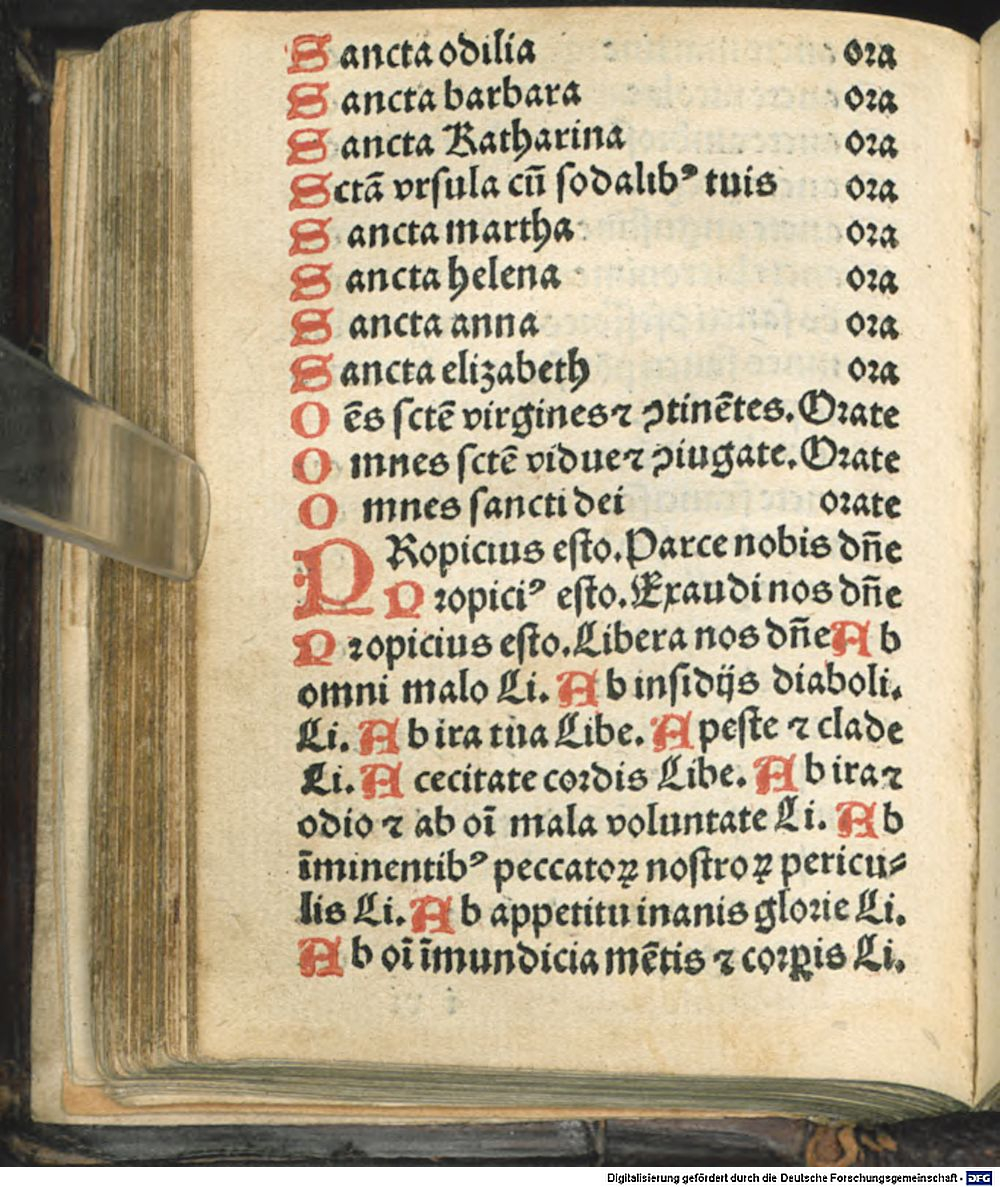 Sancta odilia ora
Sancta barbara ora
Sancta Katharina ora
Sctā vrsula cū sodalibꝰ tuis ora
Sancta martha ora
Sancta helena ora
Sancta anna ora
Sancta elizabeth ora
Oēs sctē virgines ⁊ ↄtinētes. Orate
Omnes sctē vidue ⁊ ↄiugate. Orate
Omnes sancti dei orate
PRopicius esto. Parce nobis dn̄e
Propiciꝰ esto. Exaudi nos dn̄e
Propicius esto. Libera nos dn̄e Ab
omni malo Li. Ab insidijs diaboli.
Li. Ab ira tua Libe. A peste ⁊ clade
Li. A cecitate cordis Libe. Ab ira ⁊
odio ⁊ ab oī mala voluntate Li. Ab
īminentibꝰ peccatoꝝ nostroꝝ pericu⸗
lis Li. Ab appetitu inanis glorie Li.
Ab oī īmundicia mētis ⁊ corꝑis Li.
Digitalisierung gefördert durch die Deutsche Forschungsgemeinschaft - DFG